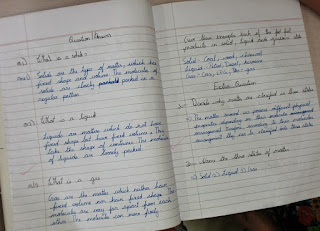 Question/Answers
Q1) What is a solid:-
Ans: Solids are the type of matter, which has
fixed shape and volume The molecules of
solids are closely packed in a
regular pattern.
Q2) What is a liquid
Liquids are matters which do not have
fixed shape but have fixed volume. They
take the shape of container The molecules
of liquids are loosely packed.
Q3) What is a gas
Gas are the matter which neither have
fixed volume nor have fixed shape The
molecule are very far apart from each
other The molecule can move freely
Give three examples each of the
products in solid, liquid and gaseous state
Solid:- Coal, wood, charcoal
Liquid:- Petrol, Diesel, kerosine
Gas:- gas
Question
why matter are classified in three states
The matter around us possess different physical
in this molecular arrangement
in this molecular
arrangement they can be classified into three state
three state of matter
i) Solid ii) Liquid iii) Gas